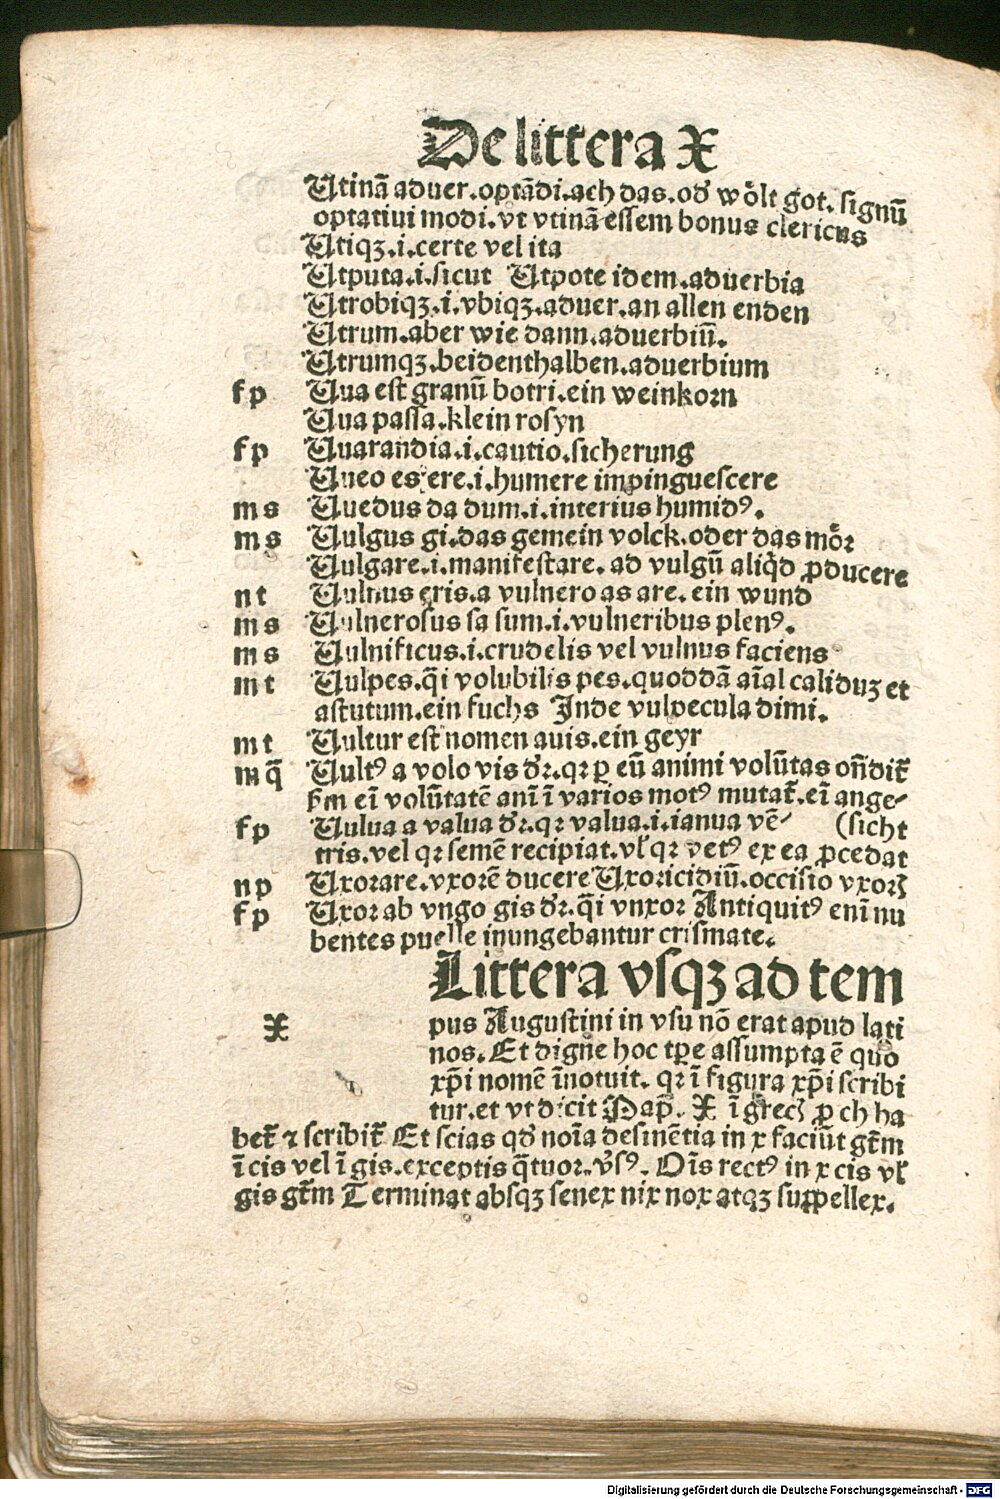 De littera X
Utinā aduer.optādi.ach das.od' wölt got.signū
optatiui modi.vt vtinā essem bonus clericus
Utiqꝫ.i.certe vel ita
Utputa.i.sicut Utpote idem.aduerbia
Utrobiqꝫ.i.vbiqꝫ.aduer.an allen enden
Utrum.aber wie dann.aduerbiū.
Utrumqꝫ.beidenthalben.aduerbium
f p Uua est granū botri.ein weinkorn
Uua passa.klein rosyn
f p Uuarandia.i.cautio.sicherung
Uueo es ere.i.humere impinguescere
m s Uuedus da dum.i.interius humidꝰ.
m s Uulgus gi.das gemein volck.oder das mör
Uulgare.i.manifestare.ad vulgū aliq̇d ꝓducere
n t Uulnus eris.a vulnero as are.ein wund
m s Uulnerosus sa sum.i.vulneribus plenꝰ.
m s Uulnificus.i.crudelis vel vulnus faciens
m t Uulpes.q̄i volubilis pes.quoddā aīal caliduꝫ et
astutum.ein fuchs Inde vulpecula dimi.
m t Uultur est nomen auis.ein geyr
m q̄ Uultꝰ a volo vis dꝛ̄.qꝛ ꝑ eū animi volūtas oñdit̄
ẜm eī volūtatē anī ī varios motꝰ mutat̄.eī ange⸗
f p Uulua a valua dꝛ̄.qꝛ valua.i.ianua vē⸗ (sicht
tris.vel qꝛ semē recipiat.vl̓ qꝛ vetꝰ ex ea ꝓcedat
n p Uxorare.vxorē ducere Uxoricidiū.occisio vxorꝭ
f p Uxor ab vngo gis dꝛ̄.q̄i vnxor Antiquitꝰ enī nu
bentes puelle inungebantur crismate.
X Littera vsqꝫ ad tem
pus Augustini in vsu nō erat apud lati
nos.Et digne hoc tp̄e assumpta ē quo
xp̄i nomē īnotuit.qꝛ ī figura xp̄i scribi
tur.et vt dicit Pap̄.X ī grecꝭ ꝓ ch ha
bet̄ ⁊ scribit̄ Et scias qd' noīa desinētia in x faciūt gt̄m
ī cis vel ī gis.exceptis q̄tuor.v̓sꝰ.Oīs rectꝰ in x cis vl̓
gis gt̄m Terminat absqꝫ senex nix nox atqꝫ suꝑpellex.
Digitalisierung gefördert durch die Deutsche Forschungsgemeinschaft - DFG